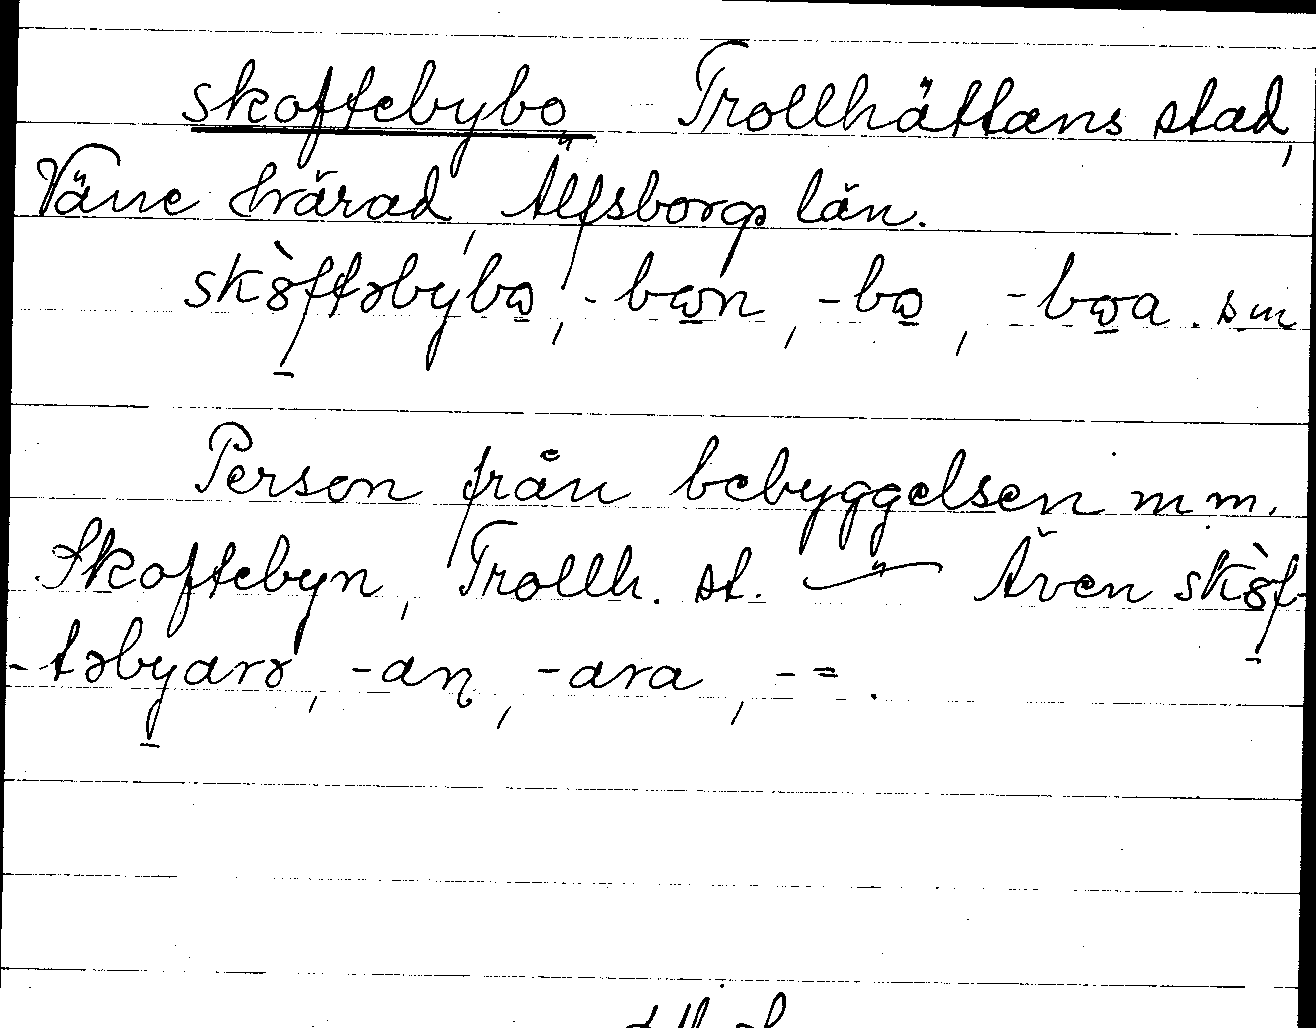 skoftebybo Trollhättans stad,
Väne härad, Älfsborgs län.
skòftəbybo, -bon, -bo, -boa. sm
Person från bebyggelsen m m.
Skoftebyn, Trollh. st. — Även skòf-
-təbyarə, -aɳ, -ara, -=.